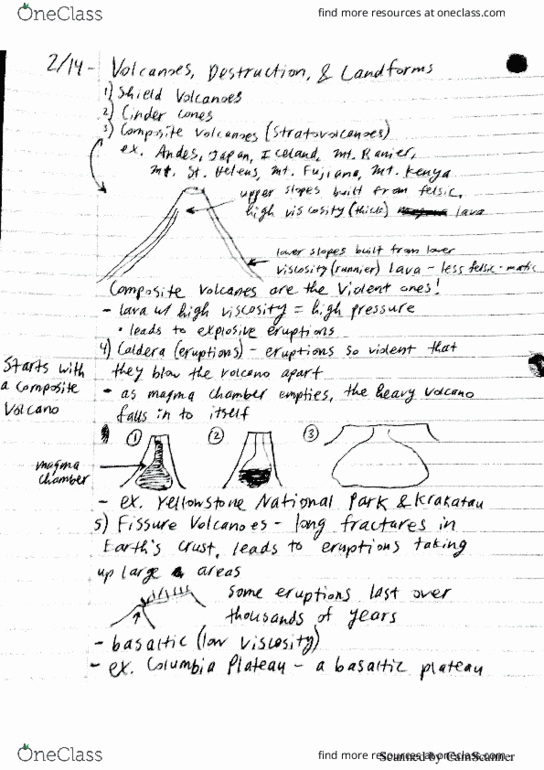 OneClass
find more resources at oneclass.com
2/14 - Volcanoes, Destruction, & Landforms
1) Shield Volcanoes
2) Cinder cones
3) Composite Volcanoes (Stratovolcanoes)
ex. Andes, Japan, Iceland, Mt. Ranier,
Mt. St. Helens, Mt. Fujiana, Mt. Kenya
upper slopes built from felsic,
high viscosity (thick) lava
lower slopes built from lower
viscosity (runnier) lava - less felsic - mafic
Composite volcanoes are the violent ones!
- lava w/ high viscosity = high pressure
• leads to explosive eruptions
4) Caldera (eruptions) - eruptions so violent that
they blow the volcano apart
Starts with
a composite
Volcano
- as magma chamber empties, the heavy volcano
falls in to itself
1 2 3
magma
chamber
- ex. Yellowstone National Park & Krakatau
5) Fissure Volcanoes - long fractures in
Earth's crust, leads to eruptions taking
up large areas
some eruptions last over
thousands of years
- basaltic (low viscosity)
- ex. Columbia Plateau - a basaltic plateau
OneClass
find more resources at oneclass.com
Scanned by CamScanner